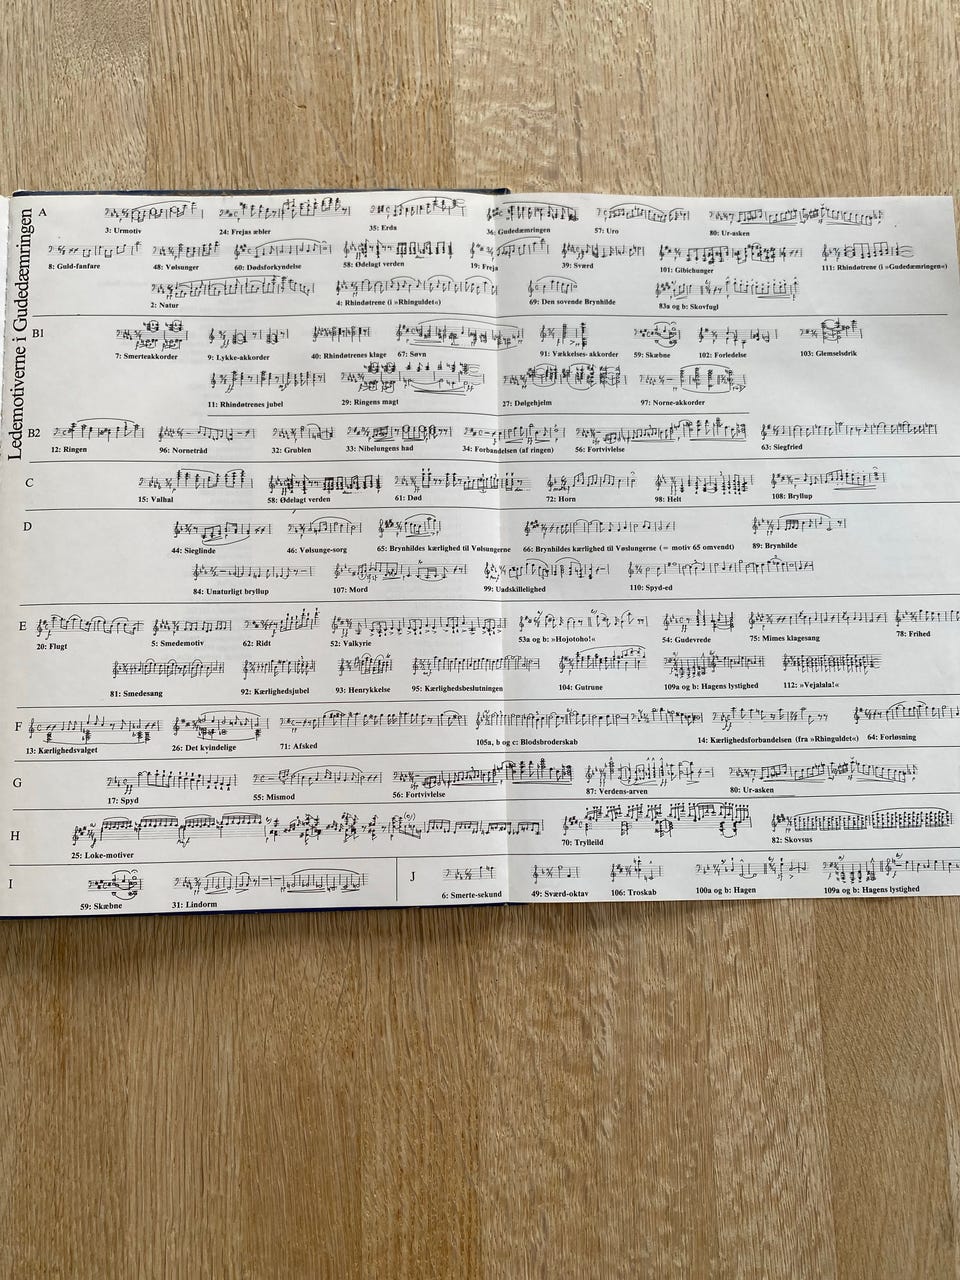 Ledemotiverne i Gudedæmringen
A
3: Urmotiv 24: Frejas æbler 35: Erda 36: Gudedæmringen 57: Uro 80: Ur-asken
8: Guld-fanfare 48: Vølsunger 60: Dødsforkyndelse 58: Ødelagt verden 19: Freja 39: Sværd 101: Gibichunger 111: Rhindøtrene (i »Gudedæmringen«)
2: Natur 4: Rhindøtrene (i »Rhinguldet«) 69: Den sovende Brynhilde 83a og b: Skovfugl
B1
7: Smerteakkorder 9: Lykke-akkorder 40: Rhindøtrenes klage 67: Søvn 91: Vækkelses- akkorder 59: Skæbne 102: Forledelse 103: Glemselsdrik
11: Rhindøtrenes jubel 29: Ringens magt 27: Dølgehjelm 97: Norne-akkorder
B2
12: Ringen 96: Nornetråd 32: Grublen 33: Nibelungens had 34: Forbandelsen (af ringen) 56: Fortvivlelse 63: Siegfried
C
15: Valhal 58: Ødelagt verden 61: Død 72: Horn 98: Helt 108: Bryllup
D
44: Sieglinde 46: Vølsunge-sorg 65: Brynhildes kærlighed til Vølsungerne 66: Brynhildes kærlighed til Vøslungerne (= motiv 65 omvendt) 89: Brynhilde
84: Unaturligt bryllup 107: Mord 99: Uadskillelighed 110: Spyd-ed
E
20: Flugt 5: Smedemotiv 62: Ridt 52: Valkyrie 53a og b: »Hojotoho!« 54: Gudevrede 75: Mimes klagesang 78: Frihed
81: Smedesang 92: Kærlighedsjubel 93: Henrykkelse 95: Kærlighedsbeslutningen 104: Gutrune 109a og b: Hagens lystighed 112: »Vejalala!«
F
13: Kærlighedsvalget 26: Det kvindelige 71: Afsked 105a, b og c: Blodsbroderskab 14: Kærlighedsforbandelsen (fra »Rhinguldet«) 64: Forløsning
G
17: Spyd 55: Mismod 56: Fortvivlelse 87: Verdens-arven 80: Ur-asken
H
25: Loke-motiver 70: Trylleild 82: Skovsus
I
59: Skæbne 31: Lindorm
J
6: Smerte-sekund 49: Sværd-oktav 106: Troskab 100a og b: Hagen 109a og b: Hagens lystighed